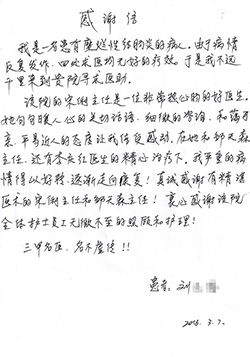 感谢信
我是一名患有糜烂性结肠炎的病人。由于病情
反复发作，四处求医均无好的疗效。于是我不远
千里来到贵院寻求医助。
该院的宋副主任是一位非常热心肠的好医生。
她句句暖人心的亲切话语、细微的答询、和蔼可
亲、平易近人的态度让我倍受感动。在她和邹天森
主任、还有李永红医生的精心治疗下，我严重的病
情得以好转，逐渐走向康复！真诚感谢有精湛
医术的宋副主任和邹天森主任！衷心感谢该院
全体护士员工无微不至的照顾和护理！
三甲名医，名不虚传！！
患者：刘
2018.3.7.